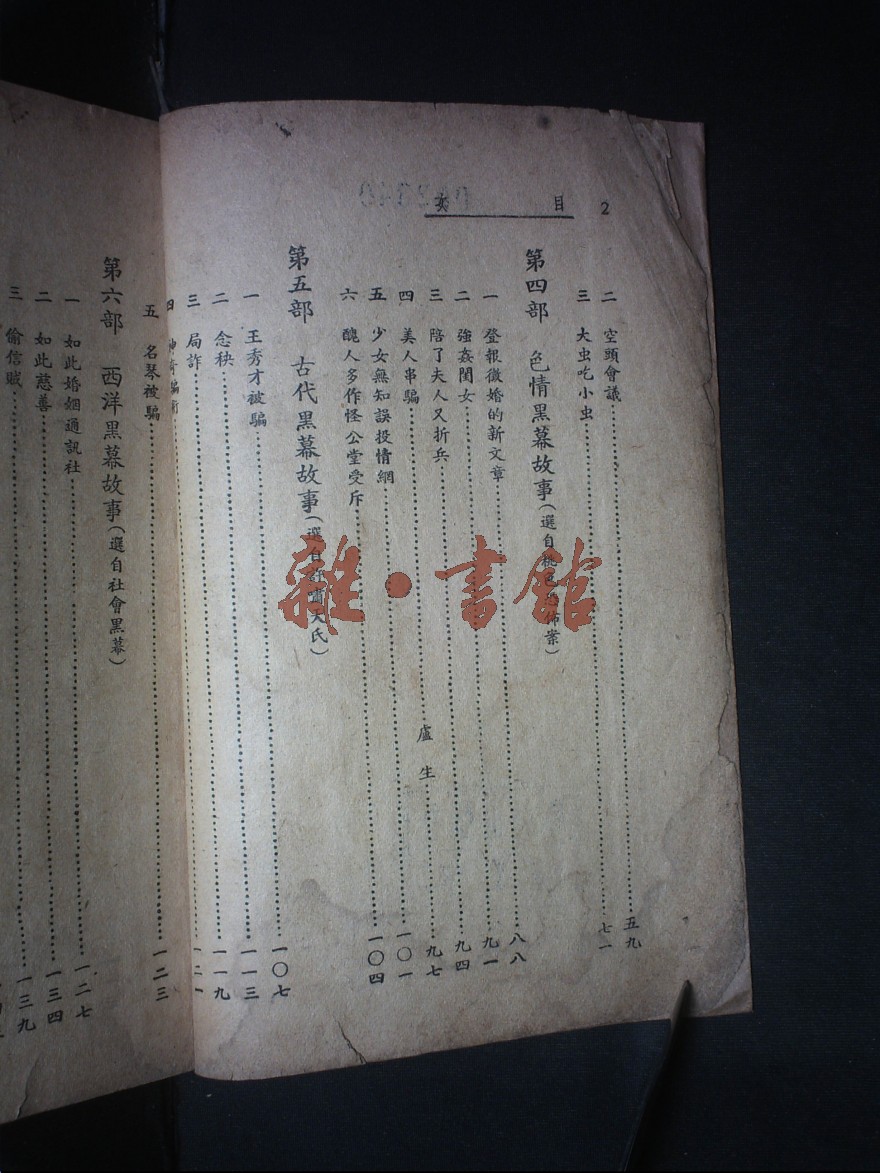 2 目 次
二 空頭會議……五九
三 大虫吃小虫……七一
第四部 色情黑幕故事(選自桃色恐怖案)
一 登報徵婚的新文章……八八
二 強姦閨女……九一
三 陪了夫人又折兵……九四
四 美人串騙……廬生……九七
五 少女無知誤投情網……一〇一
六 醜人多作怪公堂受斥……一〇四
第五部 古代黑幕故事(選自許嘯天氏)
一 王秀才被騙……一〇七
二 念秧……一一三
三 局詐……一一九
四 神奇騙術……一二一
五 名琴被騙……一二三
第六部 西洋黑幕故事(選自社會黑幕)
一 如此婚姻通訊社……一二七
二 如此慈善……一三四
三 偷信賊……一三九
雜·書館